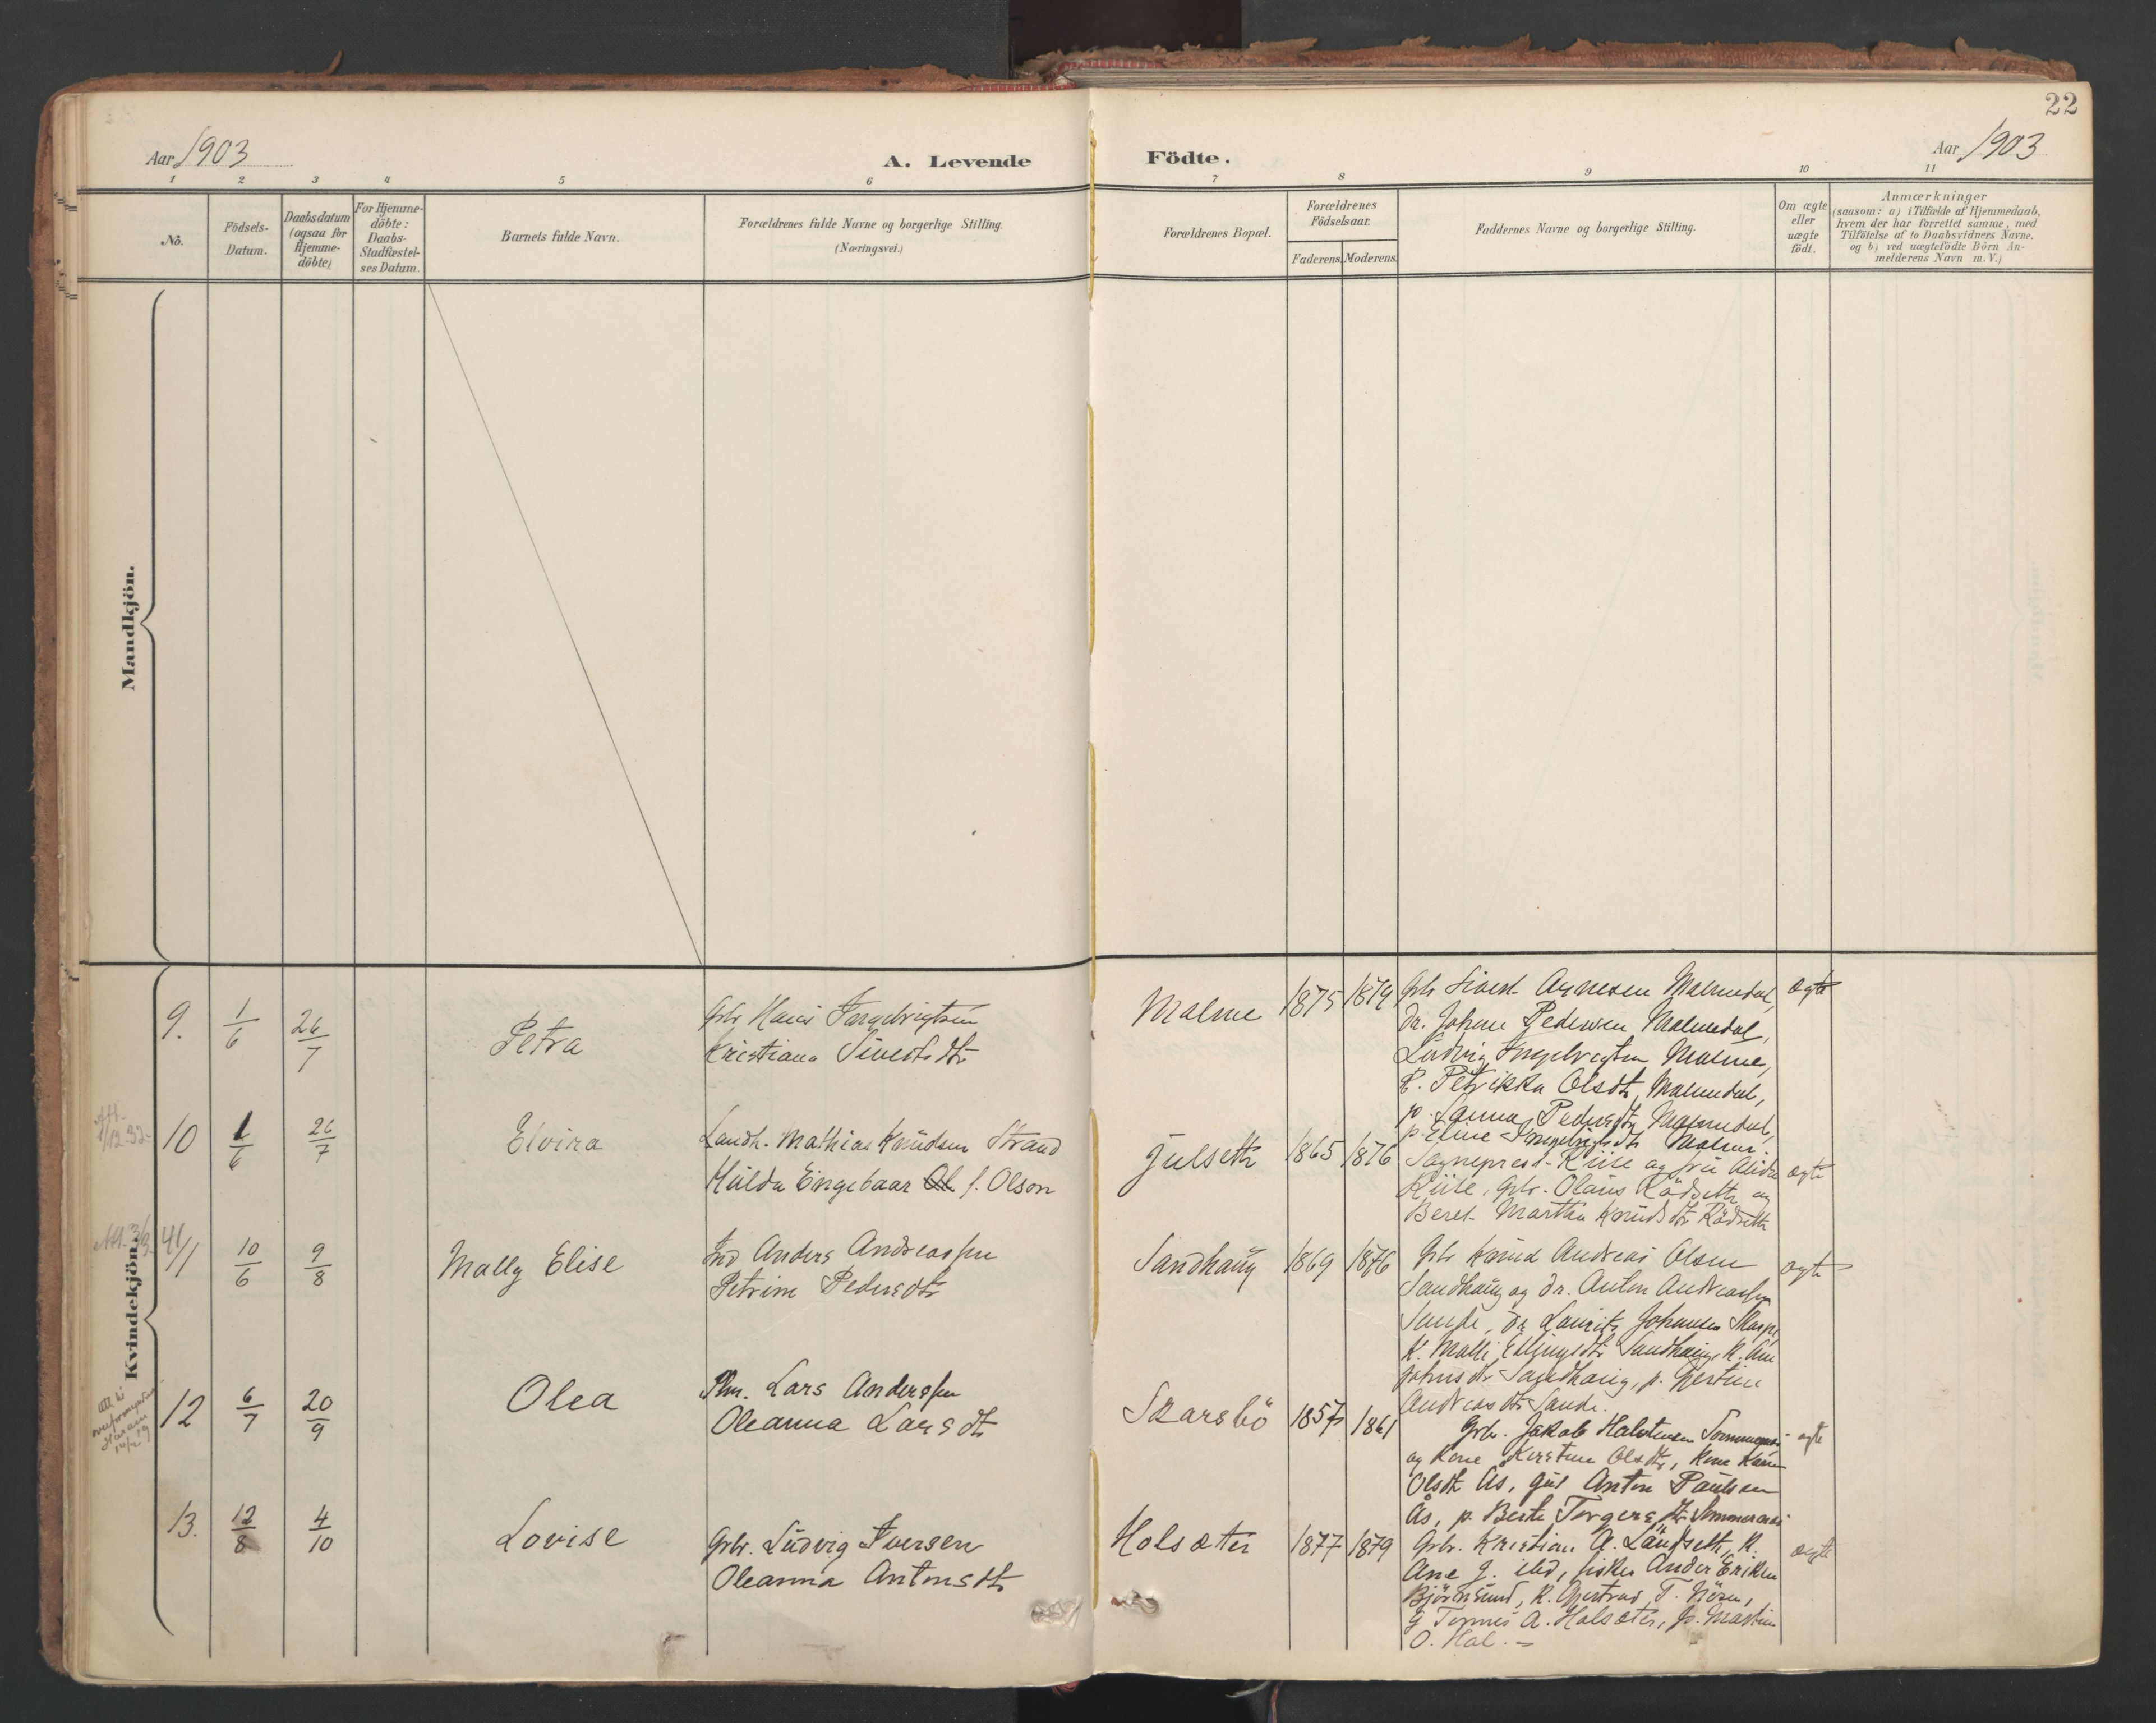 22
Aar 1903
A. Levende Födte.
Aar 1903
1 2 3 4 5 6 7 8 9 10 11
No.
Födsels-
Datum.
Daabsdatum
(ogsaa for
Hjemme-
döbte)
For Hjemme-
döbte:
Daabs-
Stadfæstel-
ses Datum.
Barnets fulde Navn.
Forældrenes fulde Navne og borgerlige Stilling.
(Næringsvei.)
Forældrenes Bopæl.
Forældrenes
Födselsaar.
Faderens. Moderens.
Faddernes Navne og borgerlige Stilling.
Om ægte
eller
uægte
födt.
Anmærkninger
(saasom: a) i Tilfælde af Hjemmedaab,
hvem der har forrettet samme, med
Tilföielse af to Daabsvidners Navne.
og b) ved uægtefödte Börn An-
melderens Navn m. V.)
Mandkjön.
Kvindekjön.
9. 1/6 26/7 Petra
Gbr Hans Ingebrigtsen
Kristiana Sivertsdtr
Malme 1875 1879
Gbr Sivert Malmedal,
Dr. Johan Pedersen Malmedal,
Ludvig Ingebrigtsen Malme,
K. Petrikka Olsdtr Malmedal,
p. Sanna Pedersdtr Malmedal,
p. Eline Ingebrigtsdtr Malme.
ægte
10 1/6 26/7 Elvira
Landh. Mathias Knudsen Strand
Hulda Engebaar f. Olson
Julseth 1865 1876
Sogneprest Kiile og fru
Kiile, Gbr. Olaus Rödseth og
Beret Martha Knudsdtr Rödseth
ægte
11 10/6 9/8 Mally Elise
Ind Anders Andreassen
Petrine Pedersdtr
Sandhaug 1869 1876
Gbr Knud Andreas Olsen
Sandhaug og Dr. Anton Andreassen
Sande, Dr Laurits Johansen
K. Malli Ellingsdtr Sandhaug, K.
Johnsdtr Sandhaug, p. Gjertine
Andreasdtr Sande.
ægte
12 6/7 20/9 Olea
Pm. Lars Anderssen
Oleanna Larsdtr
Skarsbö 1857 1861
Gbr. Jakob Halstensen
og Kone Kirstine Olsdtr, Kone Karen
Olsdtr Ås, Gut Anton Paulsen
Ås, p. Berte Torgersdtr
ægte
13. 12/8 4/10 Lovise
Gbr. Ludvig Iversen
Oleanna Antonsdtr
Holsæter 1877 1879
Gbr. Kristian A. Landseth, K.
Ane J. ibd, fisker Ander Eriksen
Björnsund, K. Gjertrud T. Nösen,
G Tönnes A. Holsæter, P. Martine
O. Hol. –
ægte